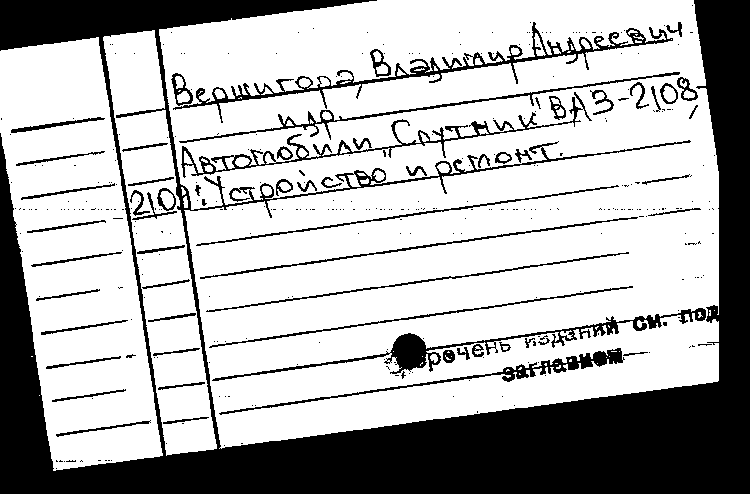 Вершигора, Владимир Андреевич
и др.
Автомобили "Спутник" ВАЗ-2108,
2109: Устройство и ремонт.
Перечень изданий см. под
заглавием